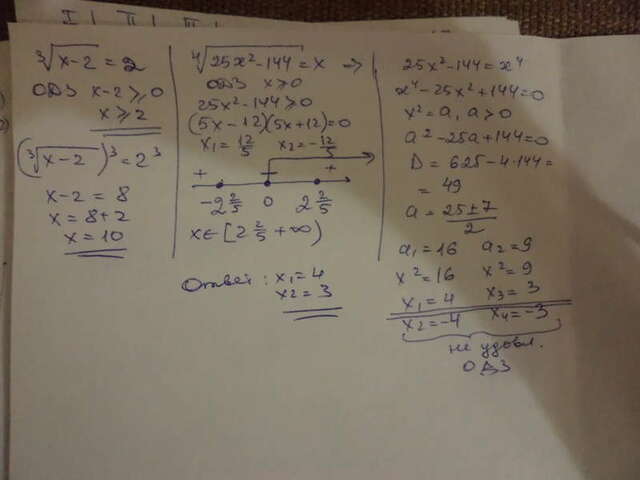 I | II | III |
∛(x-2) = 2
ОДЗ x-2 ≥ 0
x ≥ 2
(∛(x-2))³ = 2³
x-2 = 8
x = 8+2
x = 10
⁴√(25x²-144) = x →
ОДЗ x ≥ 0
25x²-144 ≥ 0
(5x-12)(5x+12) = 0
x₁ = 12/5 x₂ = -12/5
+ - +
-2 2/5 0 2 2/5
x∈[2 2/5 +∞)
Ответ: x₁ = 4
x₂ = 3
25x²-144 = x⁴
x⁴-25x²+144 = 0
x² = a, a > 0
a²-25a+144 = 0
D = 625-4·144 =
= 49
a = (25±7)/2
a₁ = 16 a₂ = 9
x² = 16 x² = 9
x₁ = 4 x₃ = 3
x₂ = -4 x₄ = -3
не удовл.
ОДЗ